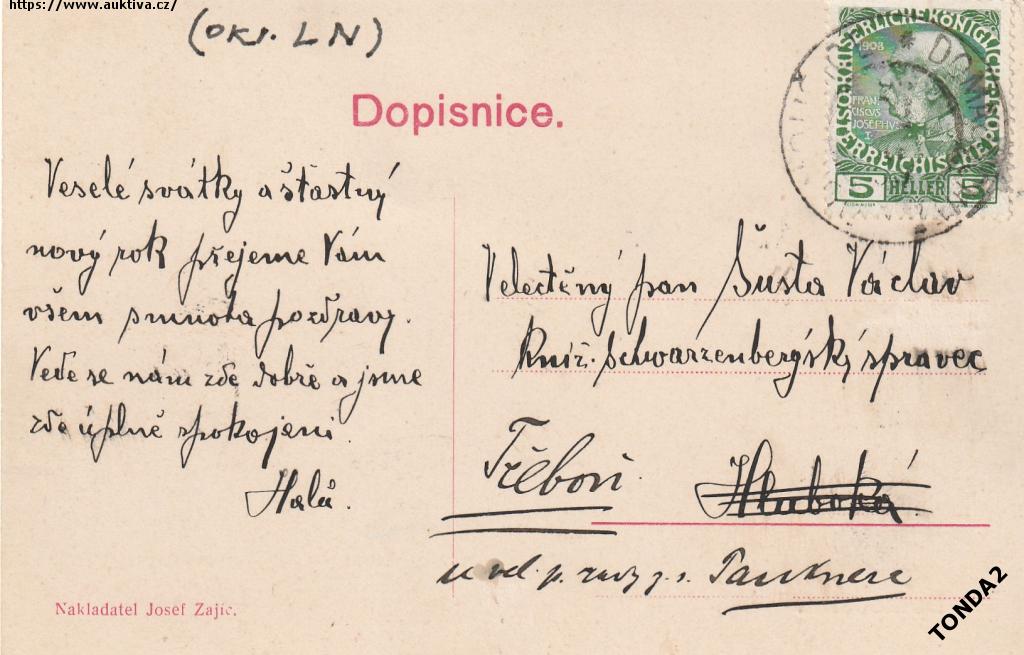 https://www.auktiva.cz/
(OKR. LN)
Dopisnice.
1908
FRAN
CISCUS
JOSEPHVS
I.
5 HELLER 5
Veselé svátky a šťastný
nový rok přejeme Vám
všem s mnoha pozdravy.
Vede se nám zde dobře a jsme
zde úplně spokojeni.
Halů.
Velectěný pan Šusta Václav
kníž. Schwarzenberský správec
Třeboň.
Hluboká
u vel. p.
Nakladatel Josef Zajíc.
TONDA2